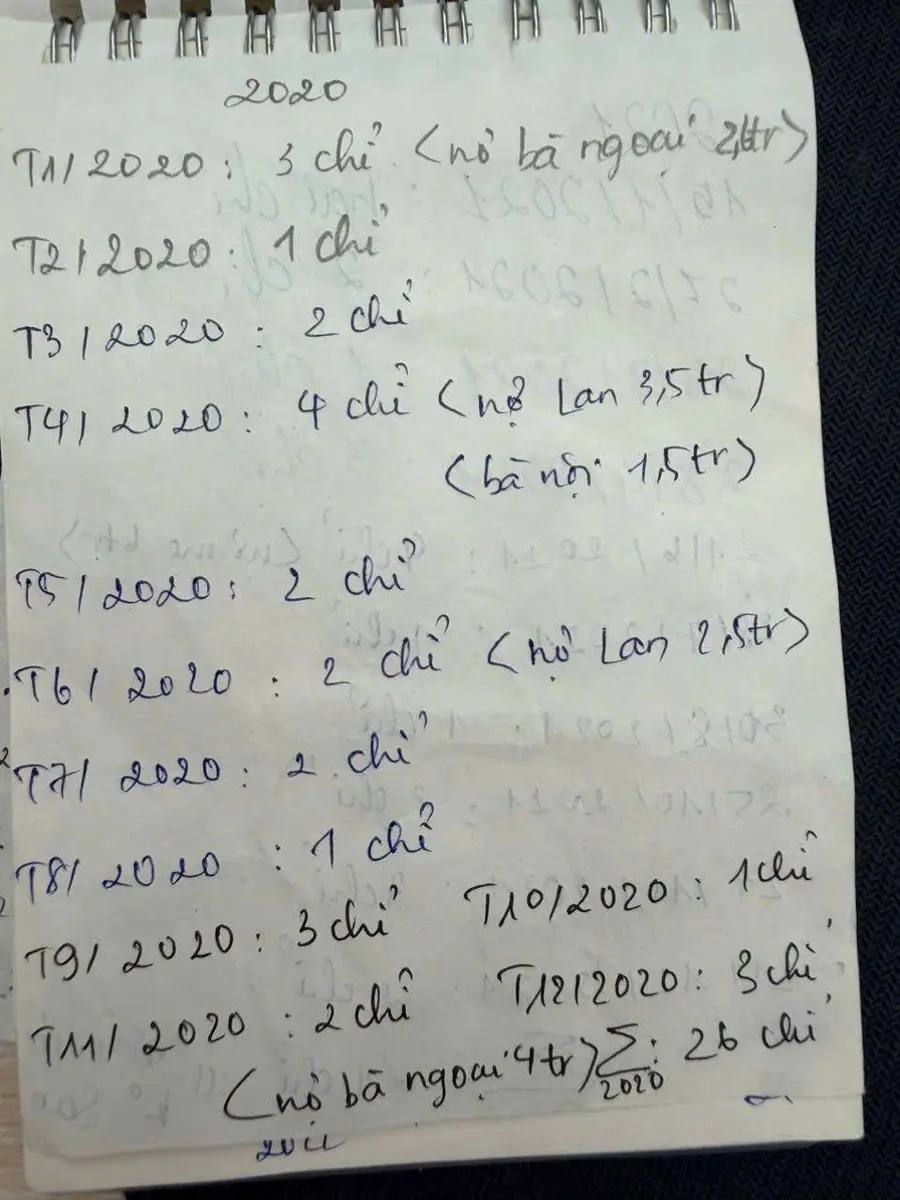 2020
T1/2020: 3 chỉ (nợ bà ngoại 2,4tr)
T2/2020: 1 chỉ
T3/2020: 2 chỉ
T4/2020: 4 chỉ (nợ Lan 3,5tr)
(bà nội 1,5tr)
T5/2020: 2 chỉ
T6/2020: 2 chỉ (nợ Lan 2,5tr)
T7/2020: 2 chỉ
T8/2020: 1 chỉ
T9/2020: 3 chỉ T10/2020: 1 chỉ
T11/2020: 2 chỉ T12/2020: 3 chỉ
(nợ bà ngoại 4tr) ∑2020: 26 chỉ